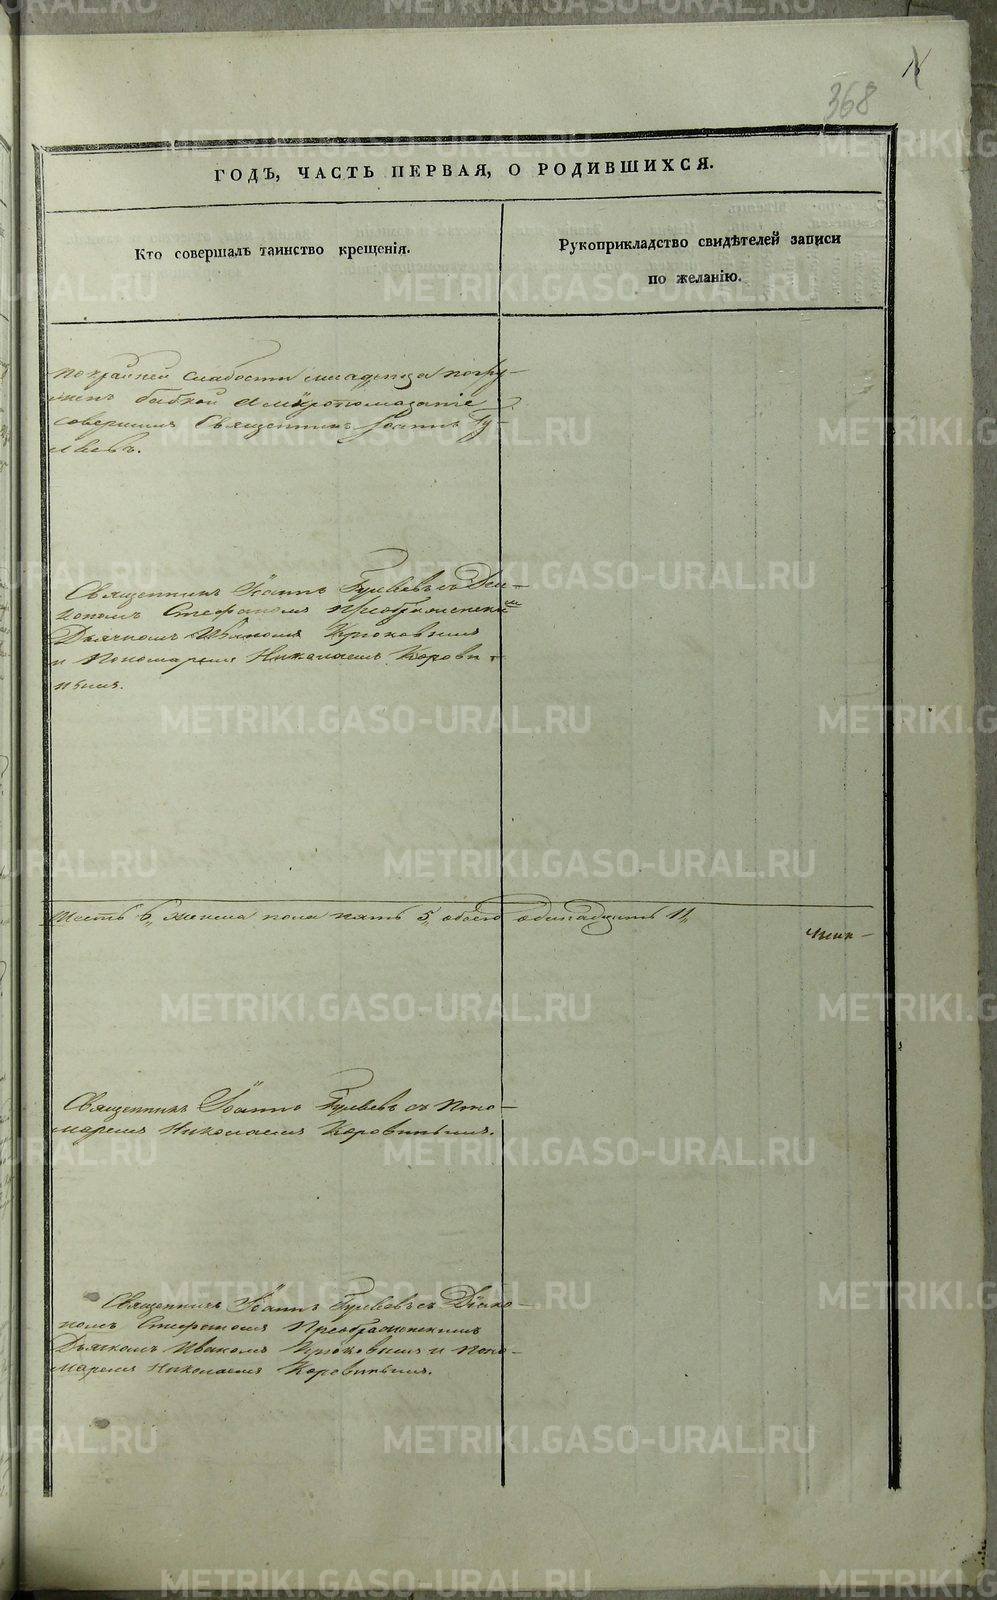 368
ГОДЪ, ЧАСТЬ ПЕРВАЯ, О РОДИВШИХСЯ.
Кто совершалъ таинство крещенія.
Рукоприкладство свидѣтелей записи
по желанію.
по крайней слабости младенца погру-
женъ бабкой а мѵропомазаніе
совершилъ Священникъ Іоаннъ Гу-
ляевъ.
Священникъ Іоаннъ Гуляевъ съ Діа-
кономъ Стефаномъ Преображенскимъ
Дьячкомъ Иваномъ Крюковымъ
и Пономаремъ Николаемъ Корови-
нымъ.
шесть 6, женска пола пять 5, обоего одинадцать 11,
Священникъ Іоаннъ Гуляевъ съ Поно-
маремъ Николаемъ Коровинымъ.
Священникъ Іоаннъ Гуляевъ съ Діако-
номъ Стефаномъ Преображенскимъ
Дьячкомъ Иваномъ Крюковымъ и Поно-
маремъ Николаемъ Коровинымъ.
METRIKI.GASO-URAL.RU